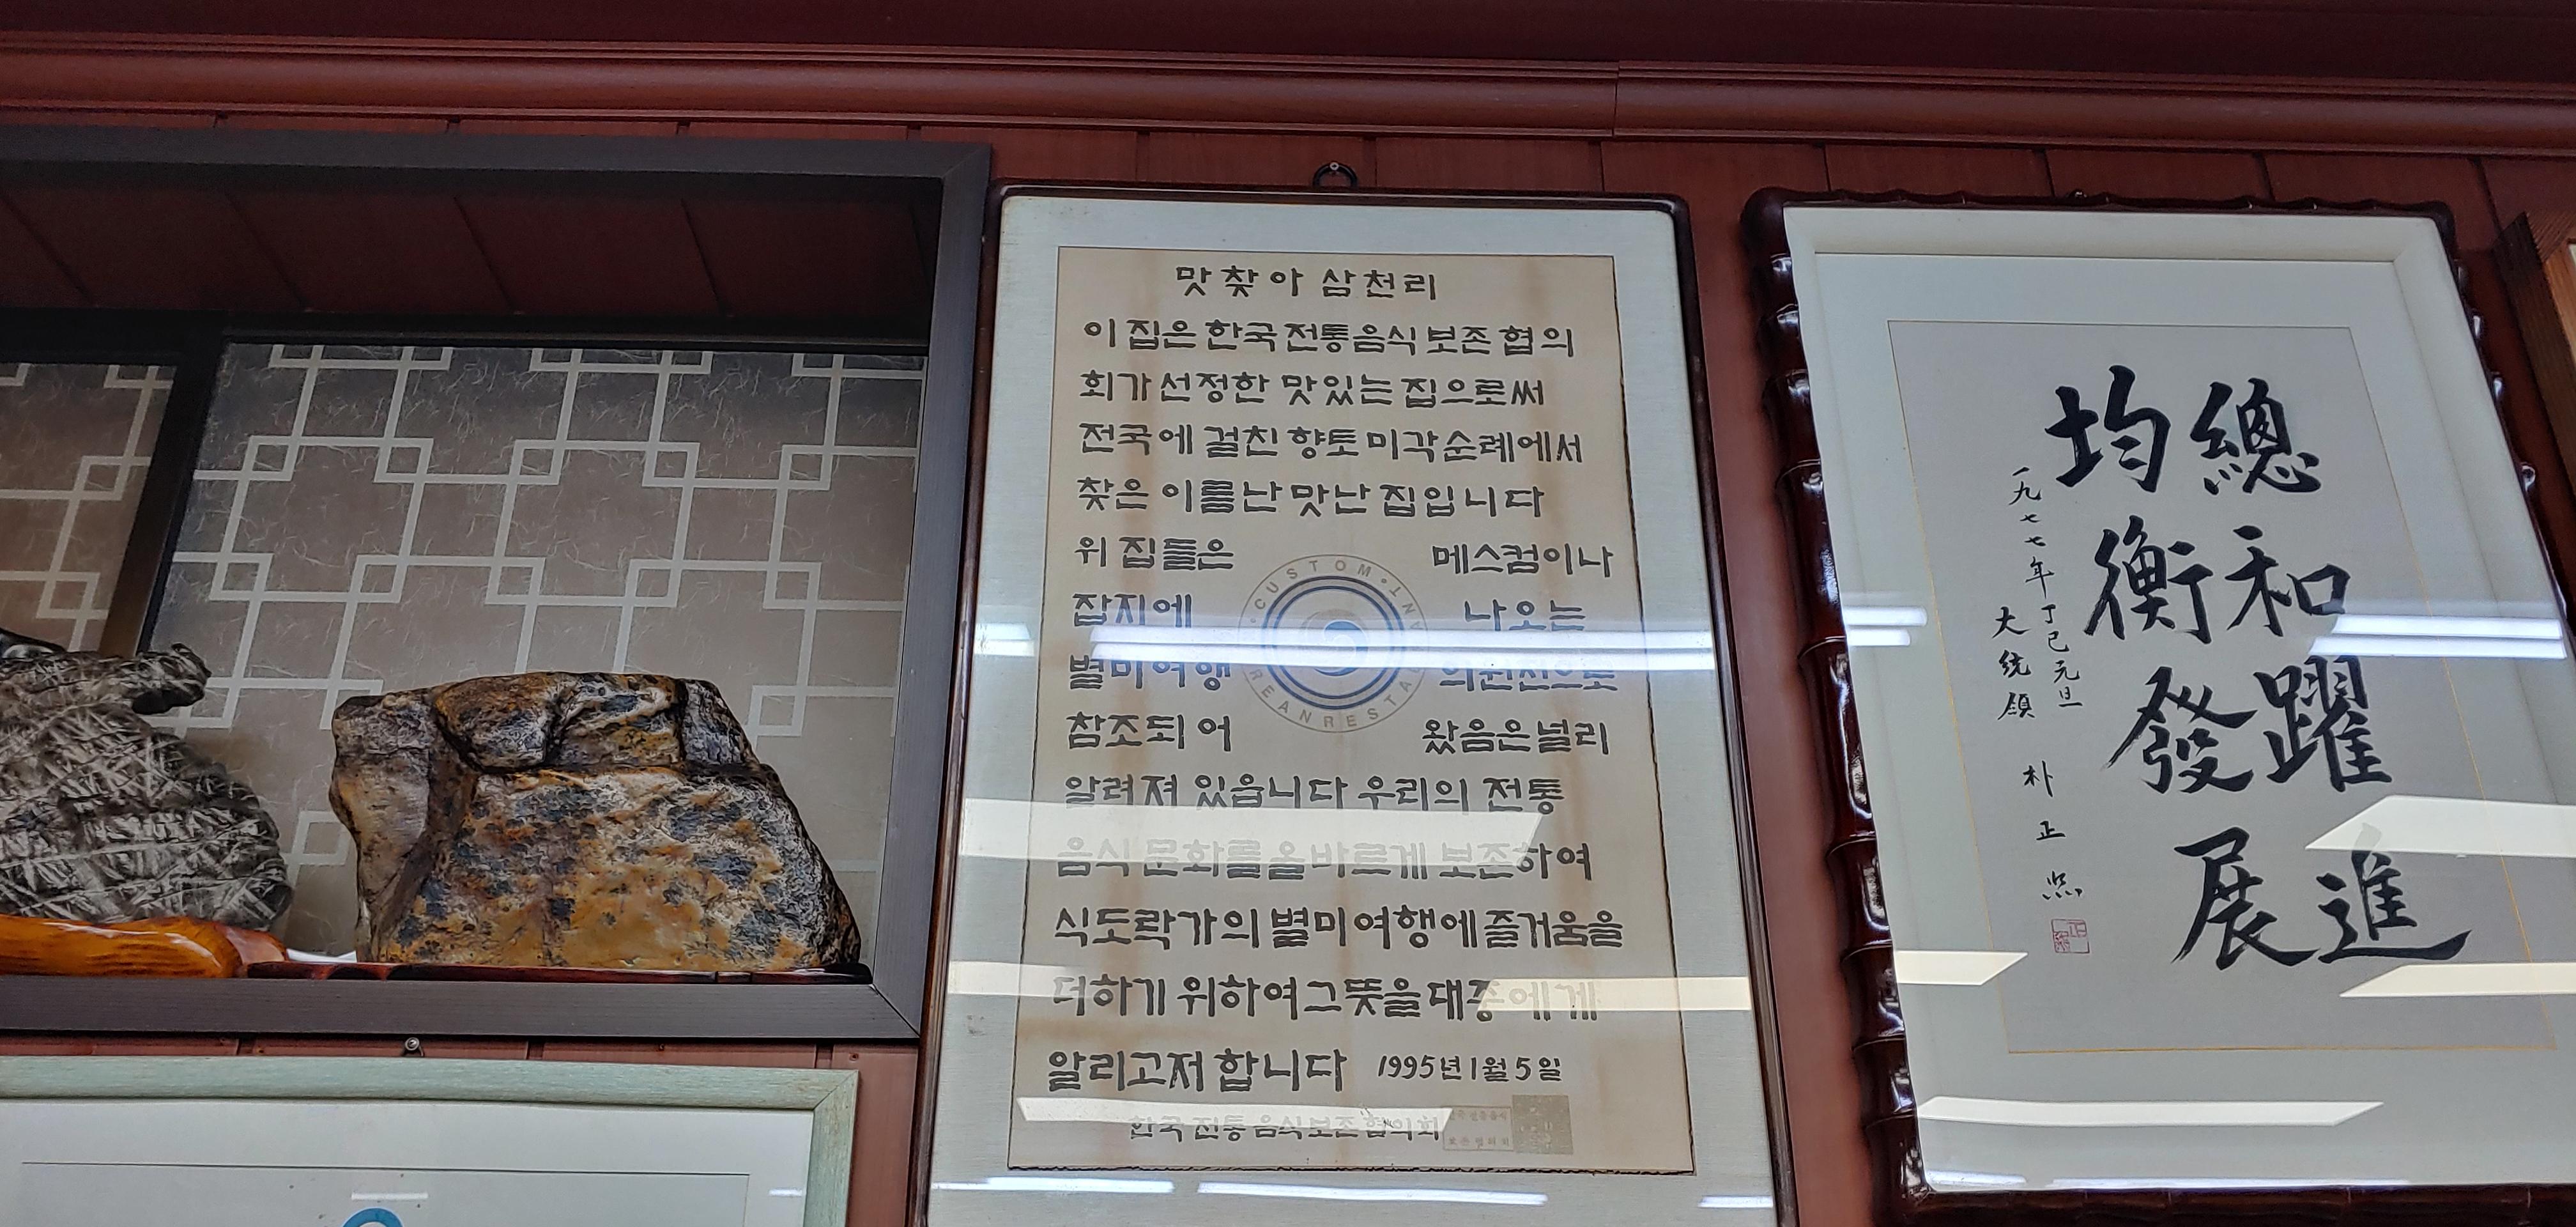 맛찾아 삼천리
이 집은 한국전통음식 보존 협의
회가 선정한 맛있는 집으로써
전국에 걸친 향토 미각순례에서
찾은 이름난 맛난 집입니다
위 집들은 메스컴이나
잡지에 나오는
별미여행 의원천으로
참조되어 왔음은 널리
알려져 있읍니다 우리의 전통
음식 문화를 올바르게 보존하여
식도락가의 별미여행에 즐거움을
더하기 위하여 그 뜻을 대중에게
알리고저 합니다 1995년 1월 5일
한국 전통 음식 보존 협의회
CUSTOM
總和躍進
均衡發展
一九七七年 丁巳元旦
大統領 朴正熙